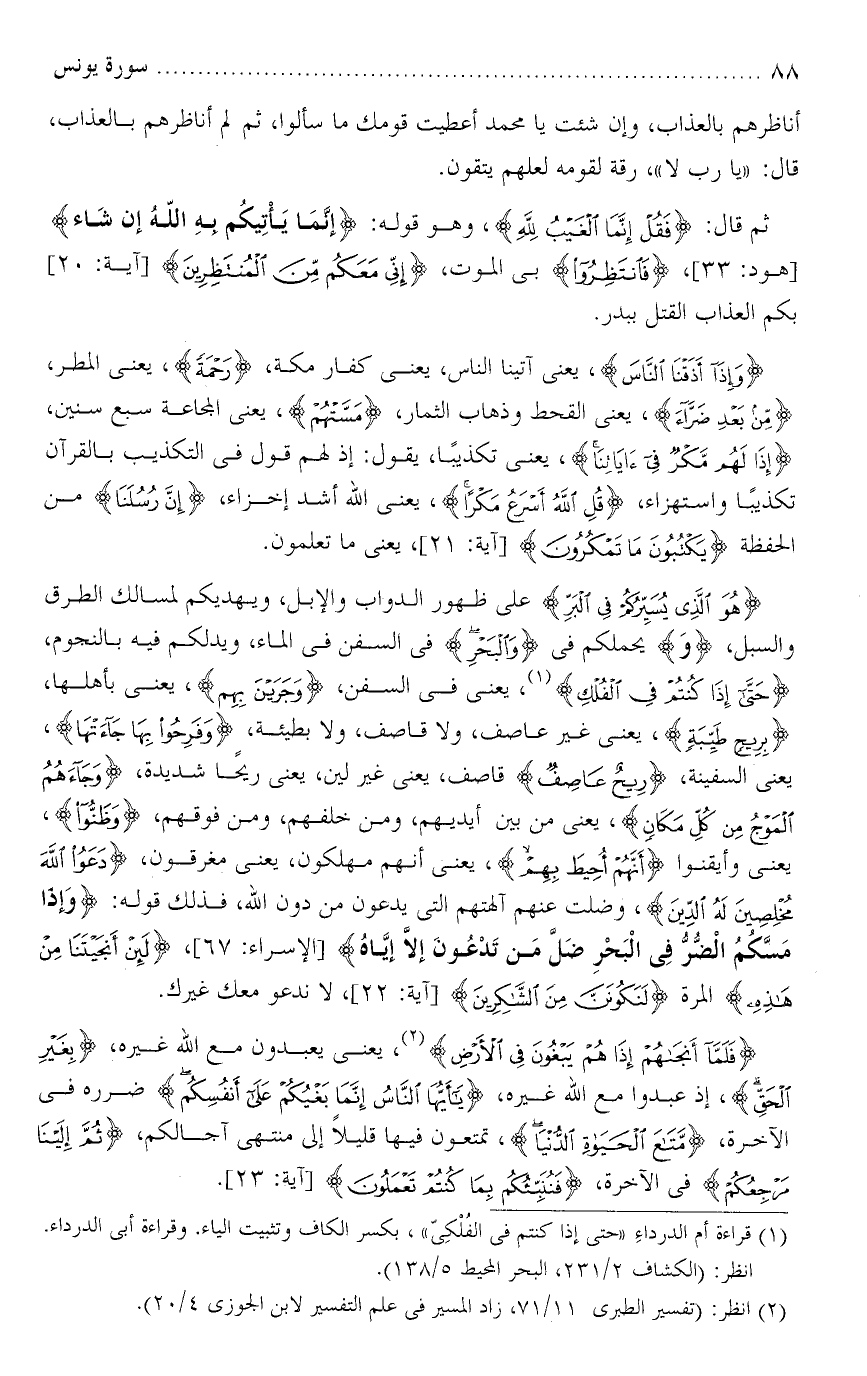 ٨٨ ........................................................................... سورة يونس
أناظرهم بالعذاب، وإن شئت يا محمد أعطيت قومك ما سألوا، ثم لم أناظرهم بالعذاب،
قال: «يا رب لا»، رقة لقومه لعلهم يتقون.
ثم قال: ﴿فَقُلْ إِنَّمَا ٱلْغَيْبُ لِلَّهِ﴾، وهو قوله: ﴿إِنَّمَا يَأْتِيكُم بِهِ اللَّهُ إِن شَاء﴾
[هود: ٣٣]، ﴿فَٱنتَظِرُوٓا۟﴾ بى الموت، ﴿إِنِّى مَعَكُم مِّنَ ٱلْمُنتَظِرِينَ﴾ [آية: ٢٠]
بكم العذاب القتل ببدر.
﴿وَإِذَآ أَذَقْنَا ٱلنَّاسَ﴾، يعنى آتينا الناس، يعنى كفار مكة، ﴿رَحْمَةً﴾، يعنى المطر،
﴿مِّنۢ بَعْدِ ضَرَّآءَ﴾، يعنى القحط وذهاب الثمار، ﴿مَسَّتْهُمْ﴾، يعنى المجاعة سبع سنين،
﴿إِذَا لَهُم مَّكْرٌ فِىٓ ءَايَاتِنَا ۚ﴾، يعنى تكذيبًا، يقول: إذ لهم قول فى التكذيب بالقرآن
تكذيبًا واستهزاء، ﴿قُلِ ٱللَّهُ أَسْرَعُ مَكْرًا ۚ﴾، يعنى الله أشد إخزاء، ﴿إِنَّ رُسُلَنَا﴾ من
الحفظة ﴿يَكْتُبُونَ مَا تَمْكُرُونَ﴾ [آية: ٢١]، يعنى ما تعلمون.
﴿هُوَ ٱلَّذِى يُسَيِّرُكُمْ فِى ٱلْبَرِّ﴾ على ظهور الدواب والإبل، ويهديكم لمسالك الطرق
والسبل، ﴿وَ﴾ يحملكم فى ﴿وَٱلْبَحْرِ ۖ﴾ فى السفن فى الماء، ويدلكم فيه بالنجوم،
﴿حَتَّىٰٓ إِذَا كُنتُمْ فِى ٱلْفُلْكِ﴾(١)، يعنى فى السفن، ﴿وَجَرَيْنَ بِهِم﴾، يعنى بأهلها،
﴿بِرِيحٍ طَيِّبَةٍ﴾، يعنى غير عاصف، ولا قاصف، ولا بطيئة، ﴿وَفَرِحُوا۟ بِهَا جَآءَتْهَا﴾،
يعنى السفينة، ﴿رِيحٌ عَاصِفٌ﴾ قاصف، يعنى غير لين، يعنى ريحًا شديدة، ﴿وَجَآءَهُمُ
ٱلْمَوْجُ مِن كُلِّ مَكَانٍ﴾، يعنى من بين أيديهم، ومن خلفهم، ومن فوقهم، ﴿وَظَنُّوٓا۟﴾،
يعنى وأيقنوا ﴿أَنَّهُمْ أُحِيطَ بِهِمْ ۙ﴾، يعنى أنهم مهلكون، يعنى مغرقون، ﴿دَعَوُا۟ ٱللَّهَ
مُخْلِصِينَ لَهُ ٱلدِّينَ﴾، وضلت عنهم آلهتهم التى يدعون من دون الله، فذلك قوله: ﴿وَإِذَا
مَسَّكُمُ الْضُّرُّ فِى الْبَحْرِ ضَلَّ مَن تَدْعُونَ إِلاَّ إِيَّاهُ﴾ [الإسراء: ٦٧]، ﴿لَئِنْ أَنجَيْتَنَا مِنْ
هَـٰذِهِۦ﴾ المرة ﴿لَنَكُونَنَّ مِنَ ٱلشَّـٰكِرِينَ﴾ [آية: ٢٢]، لا ندعو معك غيرك.
﴿فَلَمَّآ أَنجَىٰهُمْ إِذَا هُمْ يَبْغُونَ فِى ٱلْأَرْضِ﴾(٢)، يعنى يعبدون مع الله غيره، ﴿بِغَيْرِ
ٱلْحَقِّ ۗ﴾، إذ عبدوا مع الله غيره، ﴿يَـٰٓأَيُّهَا ٱلنَّاسُ إِنَّمَا بَغْيُكُمْ عَلَىٰٓ أَنفُسِكُم ۖ﴾ ضرره فى
الآخرة، ﴿مَّتَـٰعَ ٱلْحَيَوٰةِ ٱلدُّنْيَا ۖ﴾، تمتعون فيها قليلاً إلى منتهى آجالكم، ﴿ثُمَّ إِلَيْنَا
مَرْجِعُكُمْ﴾ فى الآخرة، ﴿فَنُنَبِّئُكُم بِمَا كُنتُمْ تَعْمَلُونَ﴾ [آية: ٢٣].
(١) قراءة أم الدرداءِ «حتى إذا كنتم فى الفُلْكِىّ»، بكسر الكاف وتثبيت الياء. وقراءة أبى الدرداء.
انظر: (الكشاف ٢/٢٣١، البحر المحيط ٥/١٣٨).
(٢) انظر: (تفسير الطبرى ١١/٧١، زاد المسير فى علم التفسير لابن الجوزى ٤/٢٠).